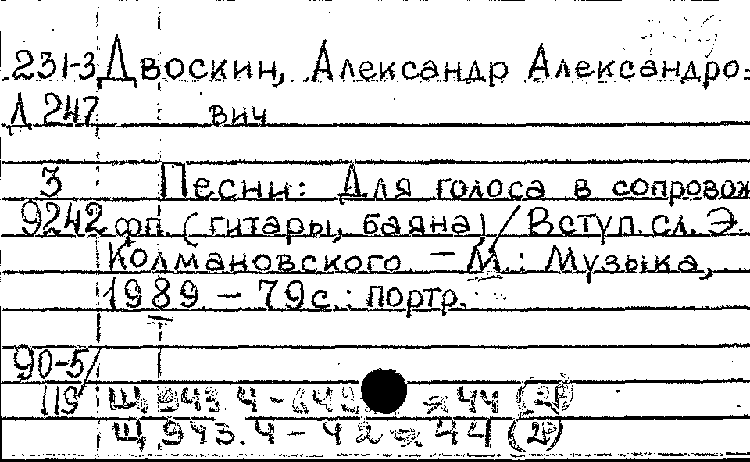 231-3 Двоскин, Александр Александро-
Д 247 вич
3 Песни: Для голоса в сопровож
9242 фп. (гитары, баяна) / Вступ. сл. Э.
Колмановского. – М.: Музыка,
1989. – 79 с.: портр.
90-5/
119 Щ 943.4 - 44 (2Р)
Щ 943.4 - 42 44 (2Р)